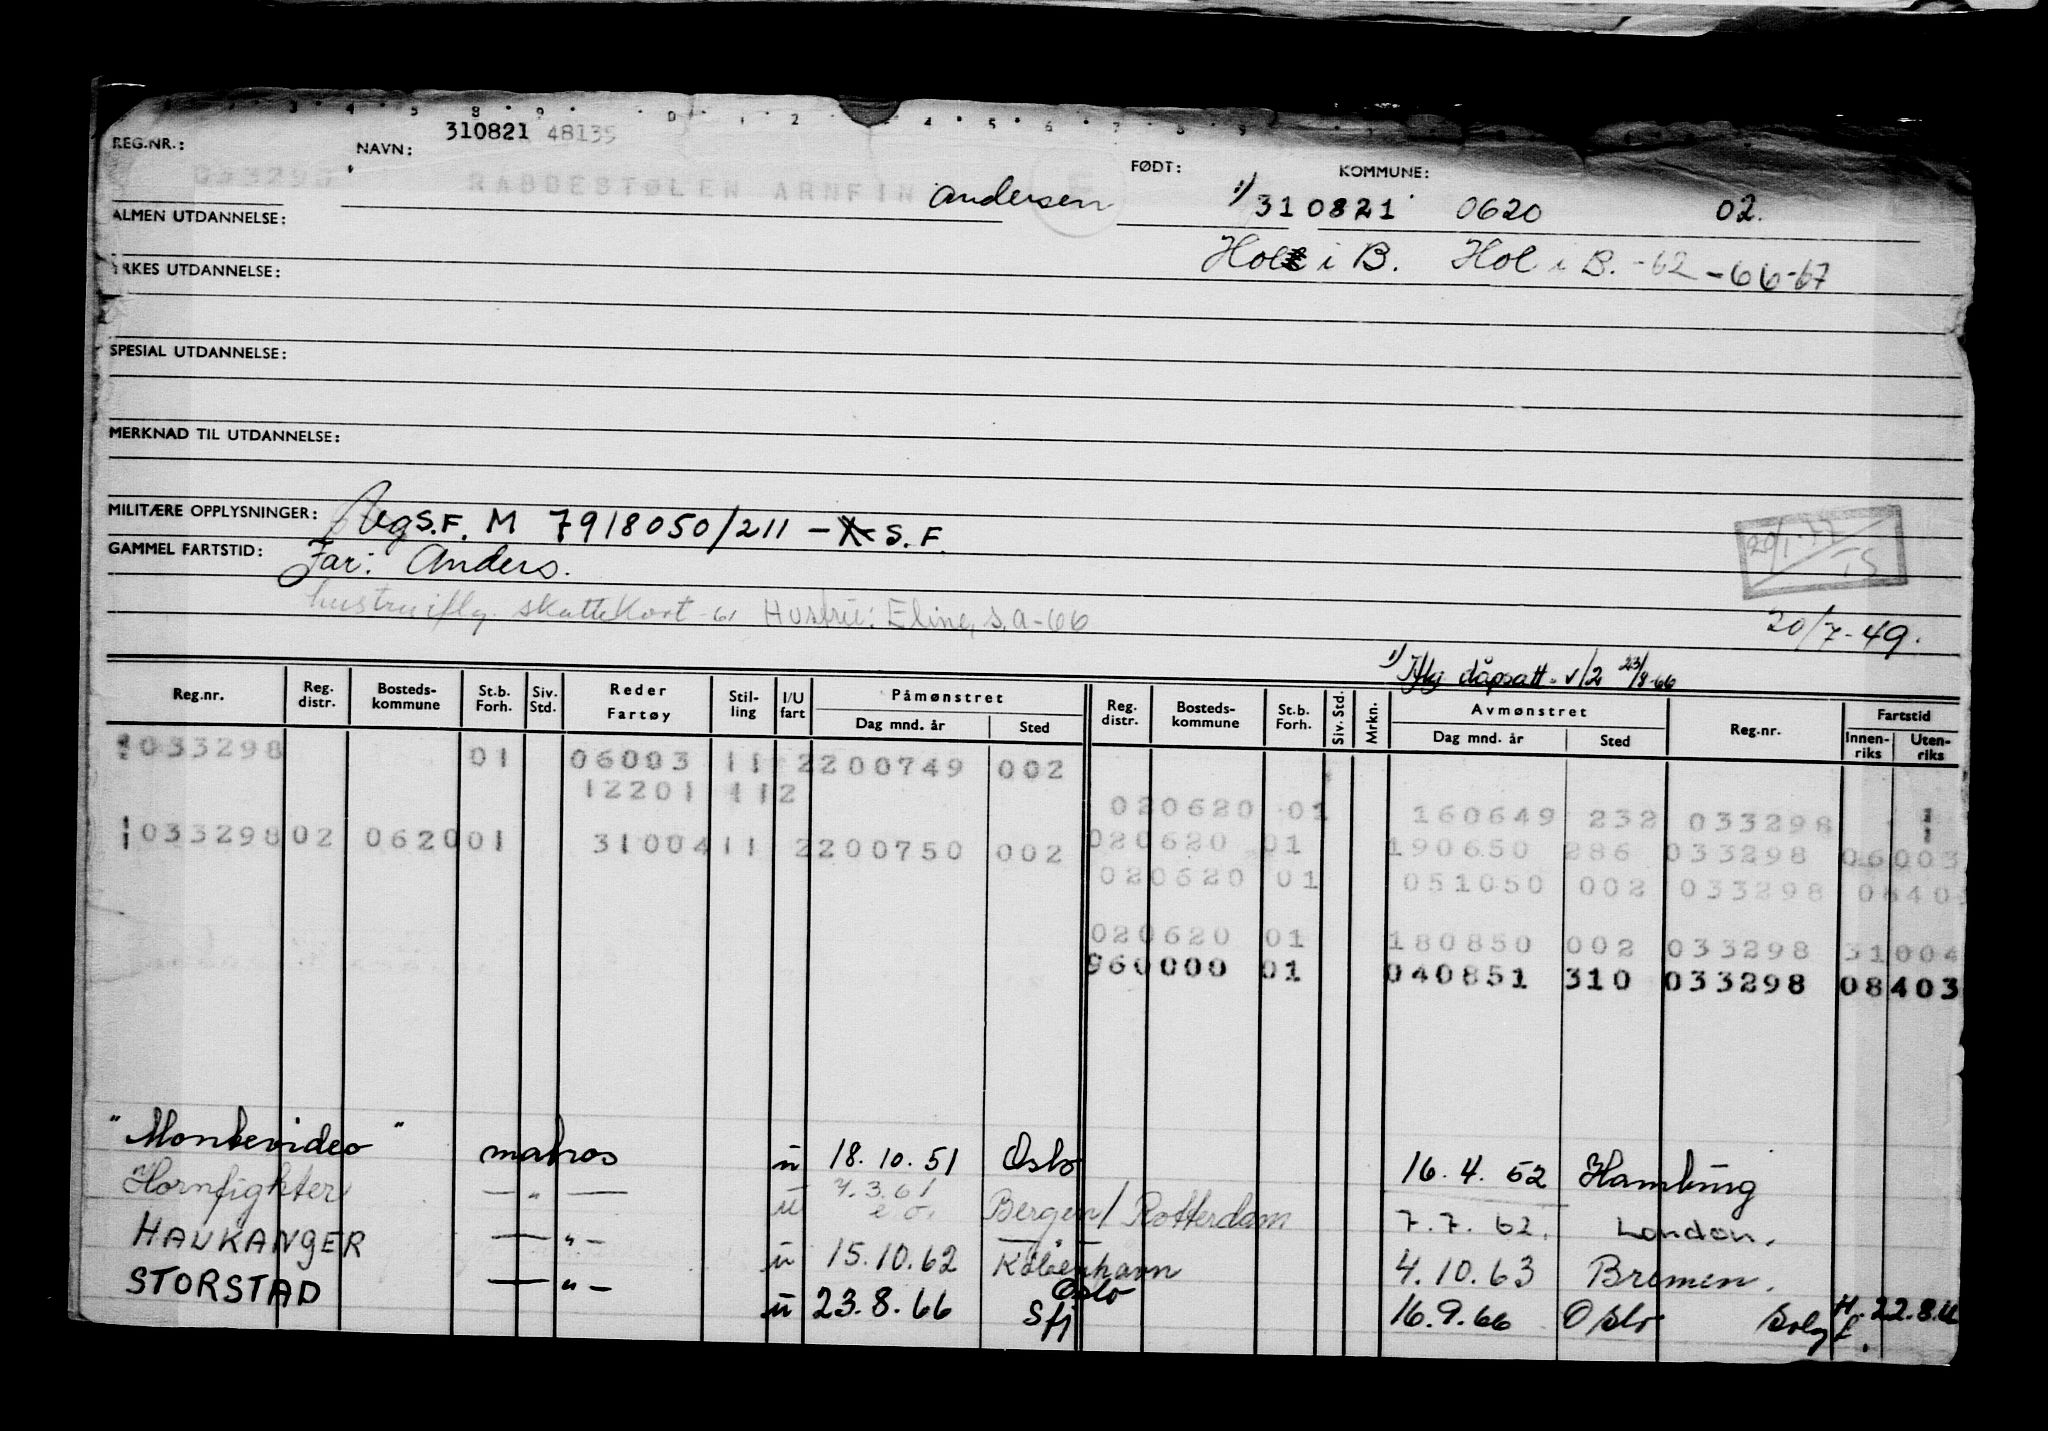 310821 48135
REG.NR.: NAVN: FØDT: KOMMUNE:
033298 RABBESTØLEN ARNFIN Andersen 1) 310821 0620 02.
ALMEN UTDANNELSE:
Hol i B. Hol i B. -62 -66-67
YRKES UTDANNELSE:
SPESIAL UTDANNELSE:
MERKNAD TIL UTDANNELSE:
MILITÆRE OPPLYSNINGER: S.F. M 7918050/211 - S.F.
GAMMEL FARTSTID: Far: Anders.
hustru iflg. skattekort -61 Hustru: Eline, s.a -66
20/7-49.
1) Iflg dåpsatt. v/2 23/8-66
Reg.nr. Reg. distr. Bosteds-kommune St.b. Forh. Siv. Std. Reder Fartøy Stil-ling I/U fart Påmønstret Dag mnd. år Sted Reg. distr. Bosteds-kommune St.b. Forh. Siv. Std. Mrkn. Avmønstret Dag mnd. år Sted Reg.nr. Fartstid Innen-riks Uten-riks
1033298 01 06003 11 2200749 002
12201 112
020620 01 160649 232 033298
1033298 02 0620 01 31004 11 2200750 002 020620 01 190650 286 033298 06003
020620 01 051050 002 033298 08403
020620 01 180850 002 033298 31004
960000 01 040851 310 033298 08403
"Montevideo" matros u 18.10.51 Oslo 16.4.52 Hamburg
Hornfighter — " — u 7.3.61 Bergen/Rotterdam 7.7.62. London.
HAUKANGER — " — u 15.10.62 København 4.10.63 Bremen.
STORSTAD — " — u 23.8.66 Oslo Sfj 16.9.66 Oslo